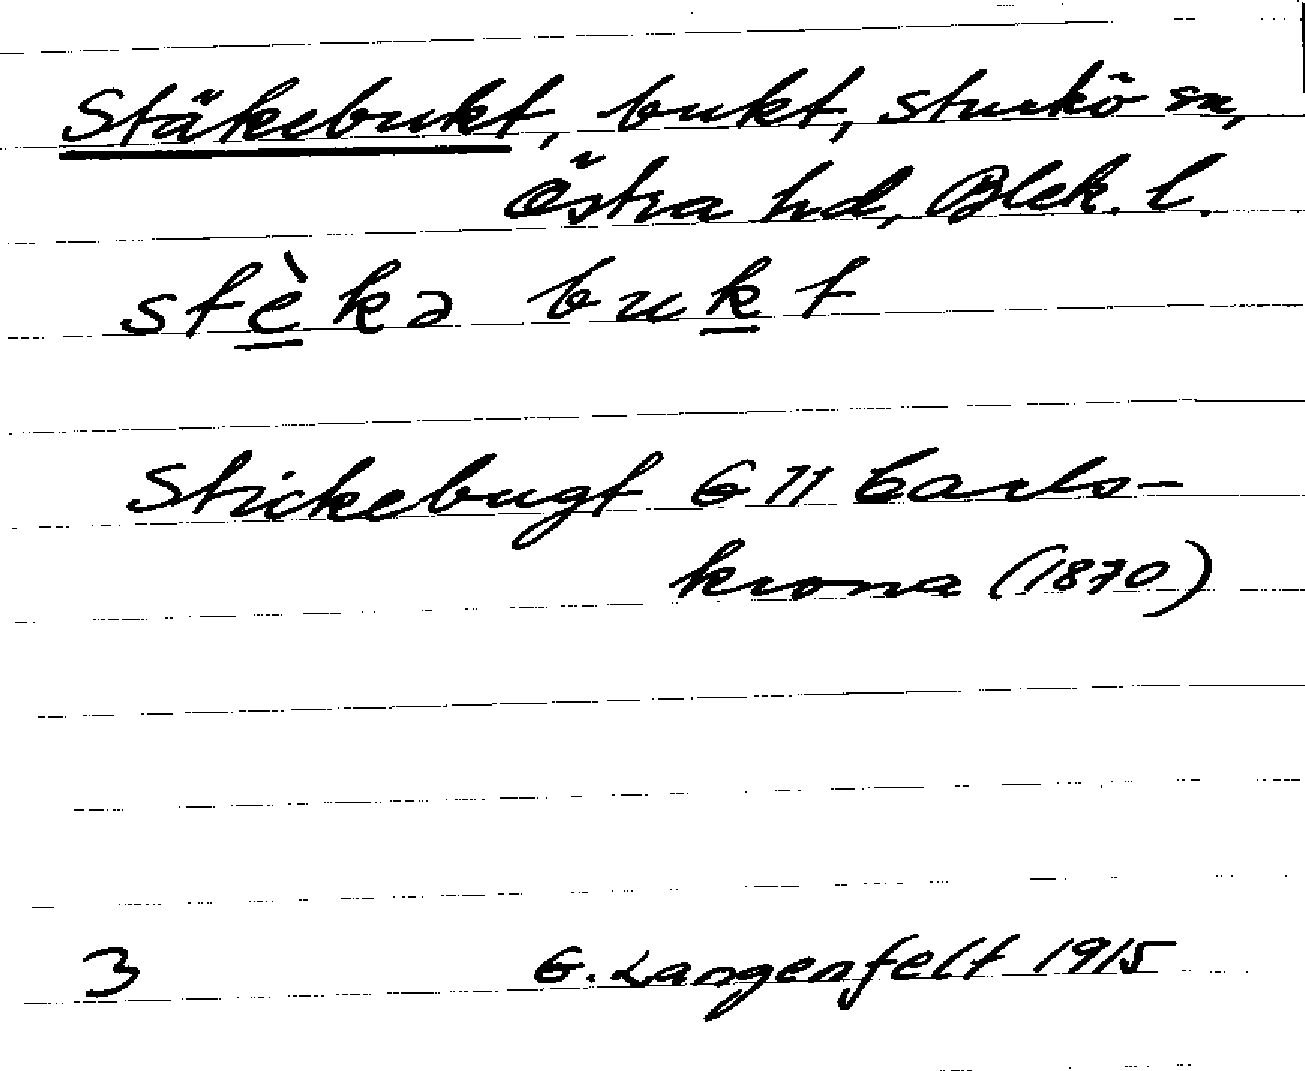 Stäkebukt, bukt, Sturkö sn,
Östra hd, Blek. l.
stèkə bukt
Stickebugt G 11 Carls-
krona (1870)
3 G. Langenfelt 1915